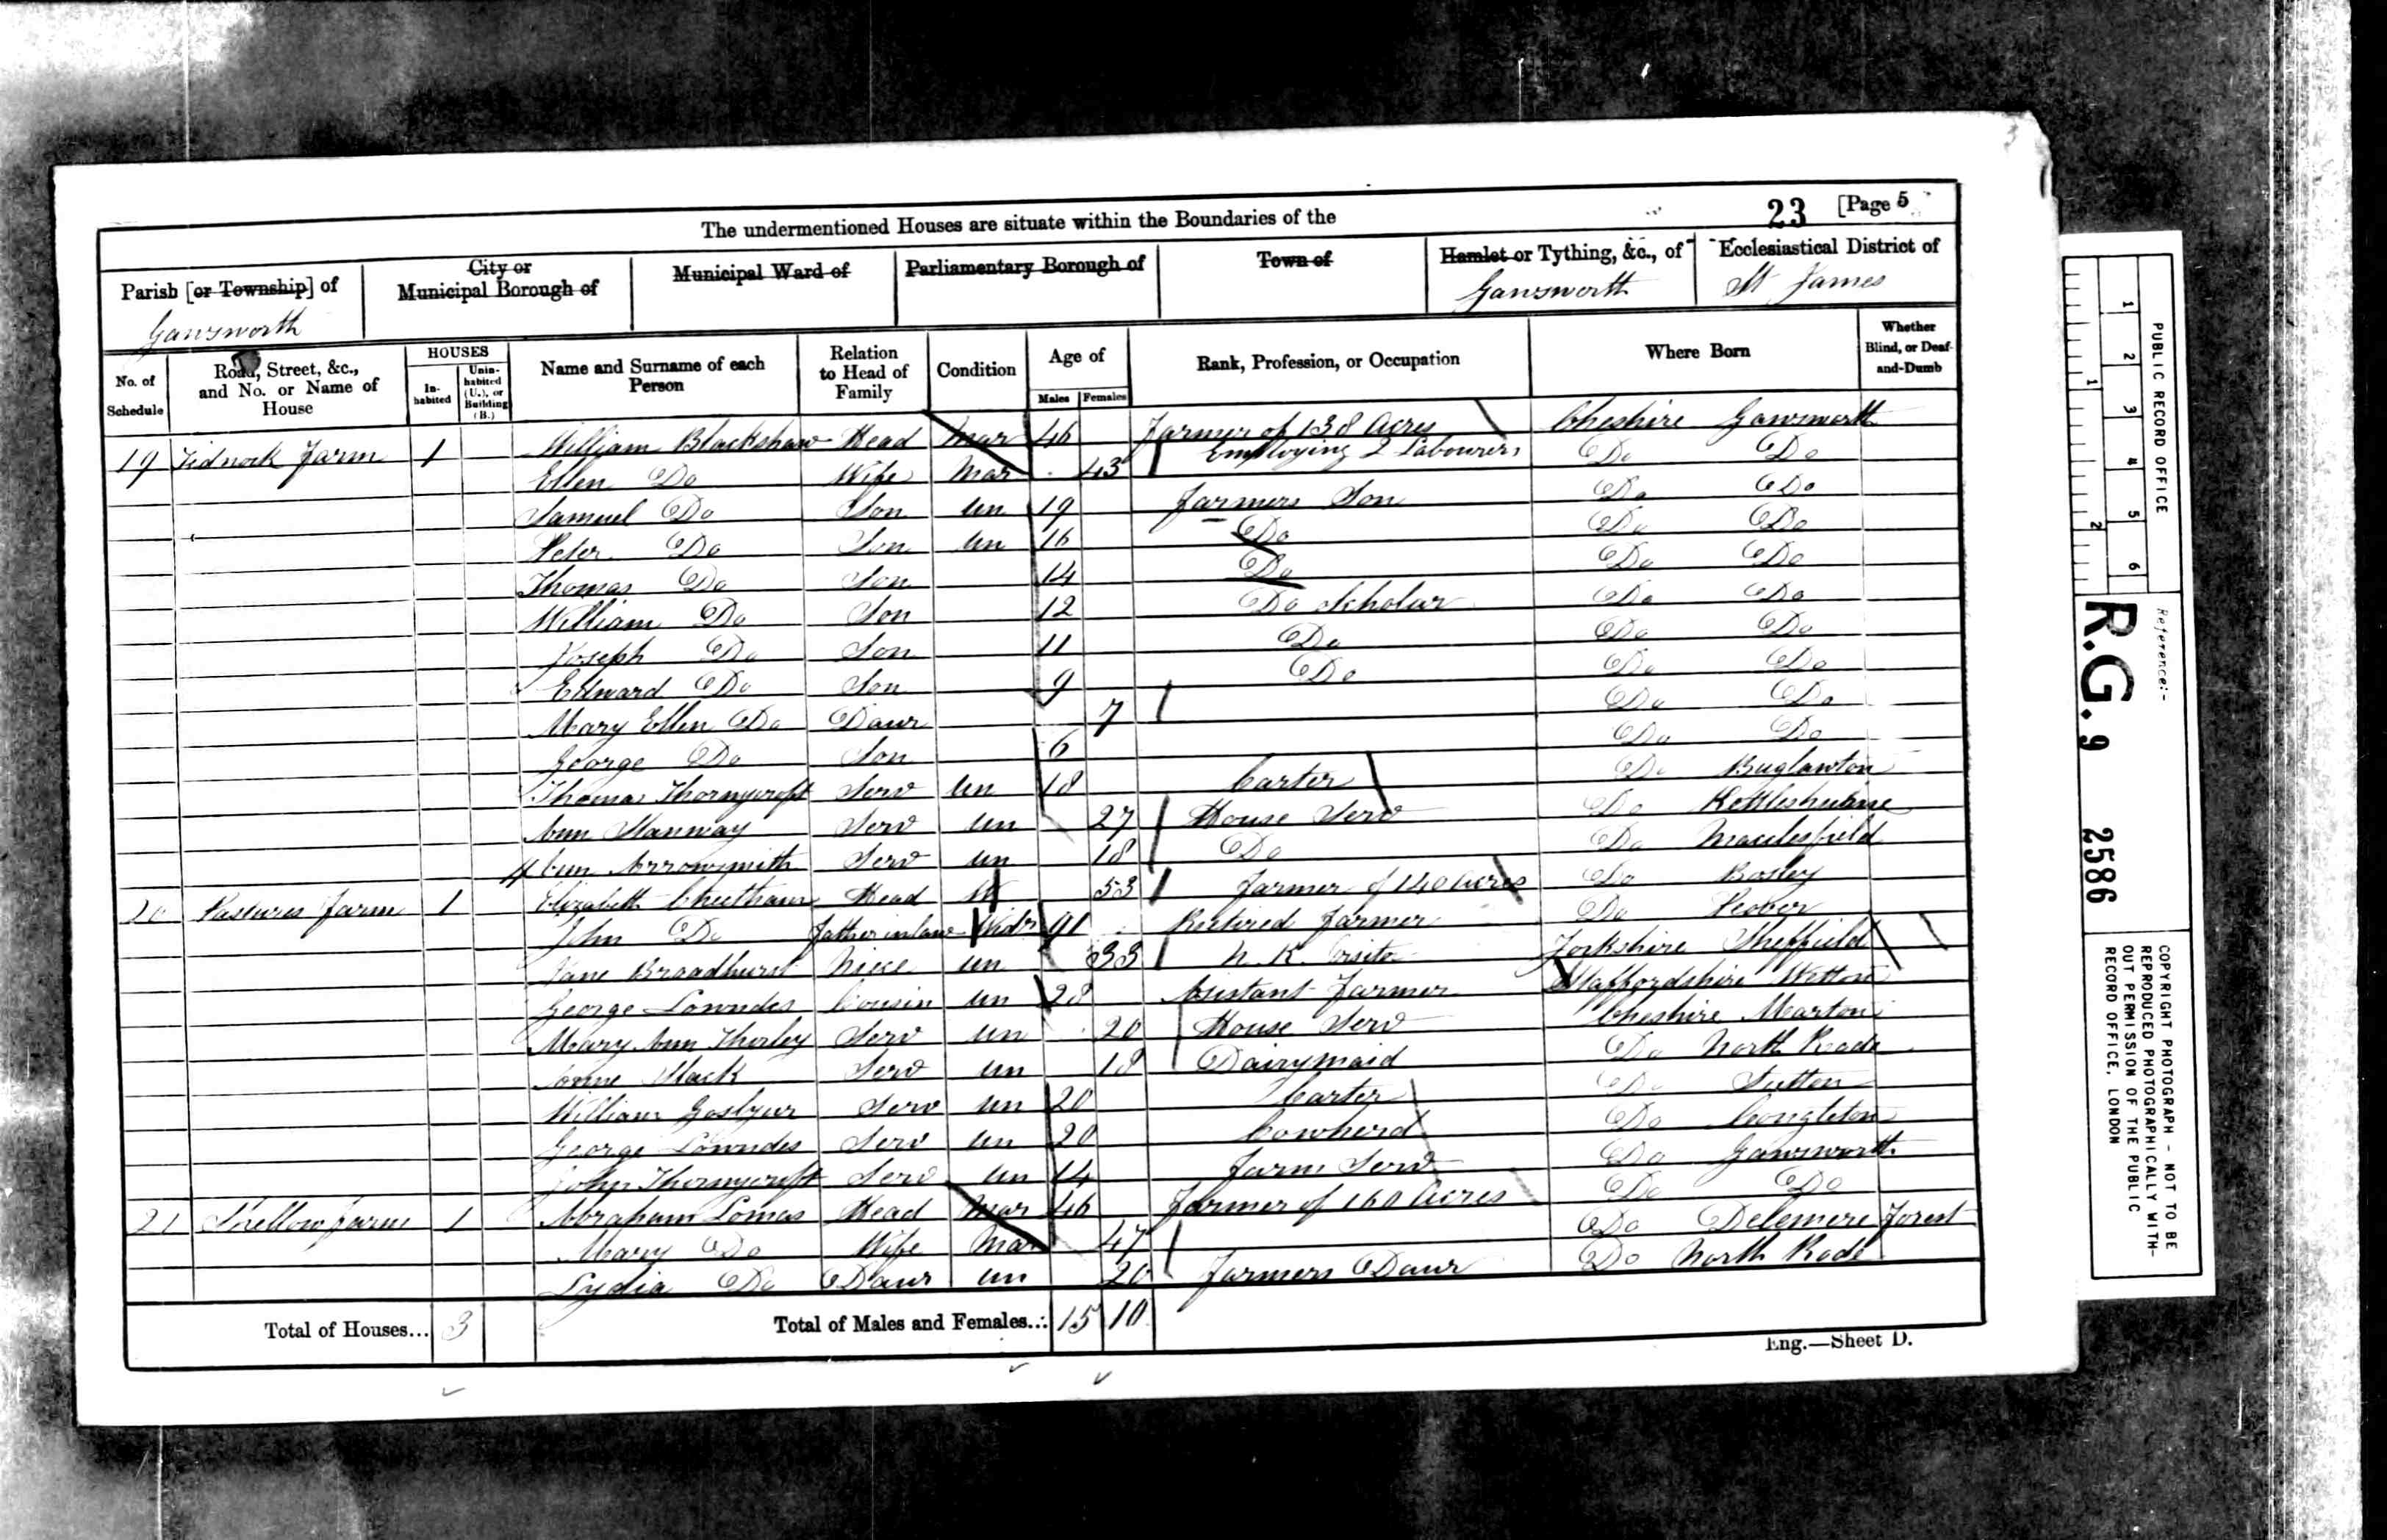 The undermentioned Houses are situate within the Boundaries of the
23 [Page 5
Parish [or Township] of Gawsworth
City or Municipal Borough of
Municipal Ward of
Parliamentary Borough of
Town of
Hamlet or Tything, &c., of Gawsworth
Ecclesiastical District of St James
No. of Schedule
Road, Street, &c., and No. or Name of House
HOUSES
In-habited
Unin-habited (U.), or Building (B.)
Name and Surname of each Person
Relation to Head of Family
Condition
Age of
Males Females
Rank, Profession, or Occupation
Where Born
Whether Blind, or Deaf-and-Dumb
19 Tidnock Farm 1 William Blackshaw Head Mar 46 Farmer of 138 Acres Employing 2 Labourers Cheshire Gawsworth
Ellen Do Wife Mar 43 Do Do
Samuel Do Son Un 19 Farmers Son Do Do
Peter Do Son Un 16 Do Do Do
Thomas Do Son 14 Do Do Do
William Do Son 12 Do Scholar Do Do
Joseph Do Son 11 Do Do Do
Edward Do Son 9 Do Do Do
Mary Ellen Do Daur 7 Do Do
George Do Son 6 Do Do
Thomas Thornycroft Serv Un 18 Carter Do Buglawton
Ann Stanway Serv Un 27 House Serv Do Kettleshulme
Ann Arrowsmith Serv Un 18 Do Do Macclesfield
20 Pastures Farm 1 Elizabeth Cheetham Head W 53 Farmer of 140 Acres Do Bosley
John Do Father in law Widr 91 Retired Farmer Do Peover
Jane Broadhurst Niece Un 33 Visitor Yorkshire Sheffield
George Lowndes Cousin Un 28 Asistant Farmer Staffordshire Wetton
Mary Ann Thorley Serv Un 20 House Serv Cheshire Marton
Slack Serv Un 18 Dairymaid Do North Rode
William Serv Un 20 Carter Do Sutton
George Lowndes Serv Un 20 Cowherd Do Congleton
John Thornycroft Serv Un 14 Farm Serv Do Gawsworth
21 Shellow Farm 1 Abraham Lomas Head Mar 46 Farmer of 160 Acres Do Do
Mary Do Wife Mar 47 Do Delemere Forest
Lydia Do Daur Un 20 Farmers Daur Do North Rode
Total of Houses... 3
Total of Males and Females... 15 10
Eng.—Sheet D.
PUBLIC RECORD OFFICE
1 2 3 4 5 6
1 2
Reference:-
R.G. 9 2586
COPYRIGHT PHOTOGRAPH - NOT TO BE
REPRODUCED PHOTOGRAPHICALLY WITH-
OUT PERMISSION OF THE PUBLIC
RECORD OFFICE, LONDON